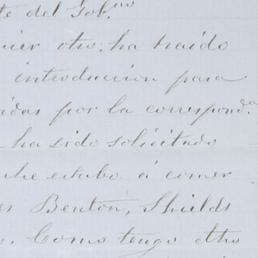 te del Gob.no
uier otro. ha traido
introduccion para
idas por la correspond.a
ha sido solicitado
che estubo á comer
es Benton, Shields
Como tengo dho